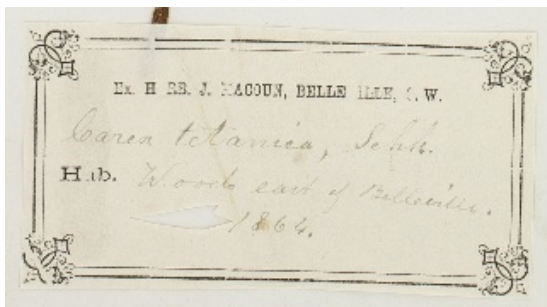 Ex. H RB. J. MACOUN, BELLE ILLE, C. W.
Carex tetanica, Schk.
Hab. Woods east of Belleville.
1864.